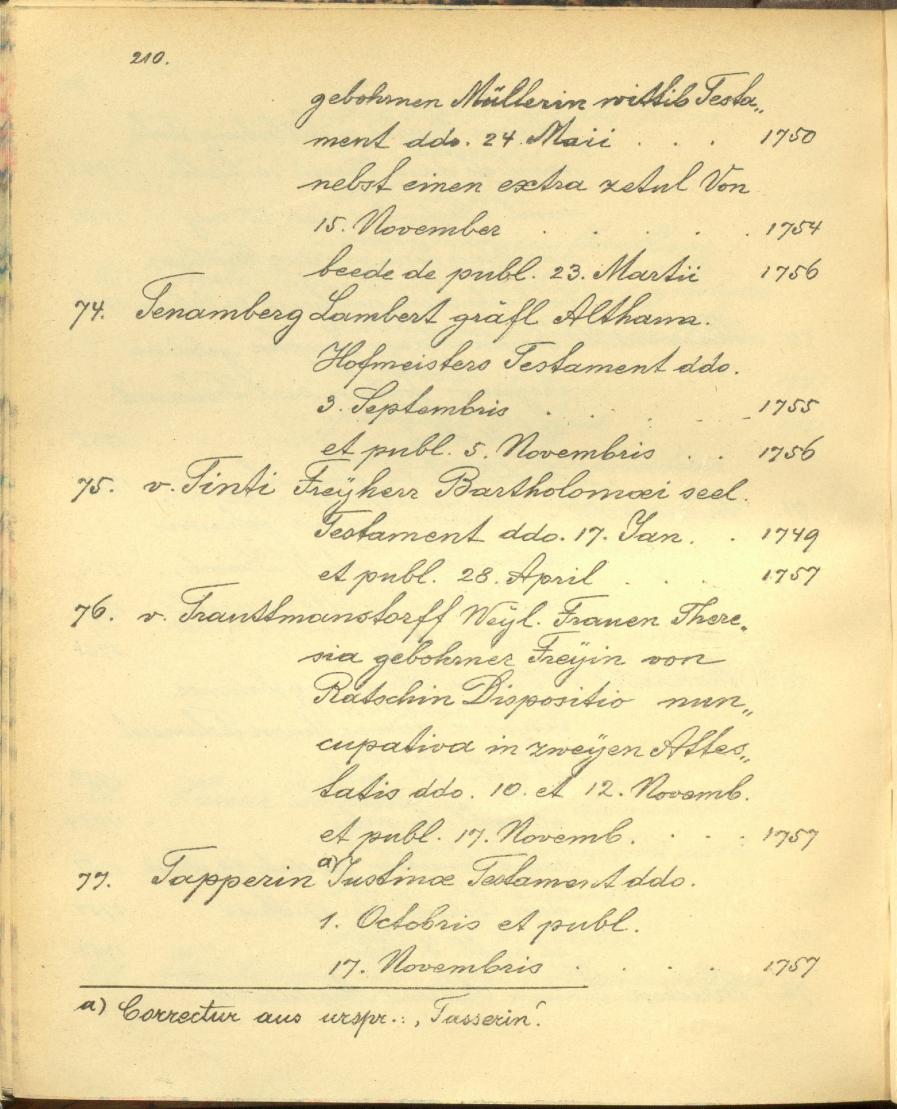 210.
gebohrnen Müllerin wittib Testa„
ment ddo. 24. Maii . . . 1750
nebst einen extra zetul Von
15. November . . . . . 1754
beede de publ. 23. Martii 1756
74. Tenamberg Lambert gräfl Althann.
Hofmeisters Testament ddo.
3. Septembris . . . . . 1755
et publ. 5. Novembris . . 1756
75. v. Tinti Freÿherr Bartholomæi seel.
Testament ddo. 17. Jan. . 1749
et publ. 28. April . . . 1757
76. v. Trauttmanstorff Weÿl. Frauen There„
sia gebohrner Freÿin von
Ratschin Dispositio nun„
cupativa in zweÿen Attes„
tatis ddo. 10. et 12. Novemb.
et publ. 17. Novemb. . . . 1757
77. Tapperin a) Justinæ Testament ddo.
1. Octobris et publ.
17. Novembris . . . . 1757
a) Correctur aus urspr.: ‚Tasserin‘.